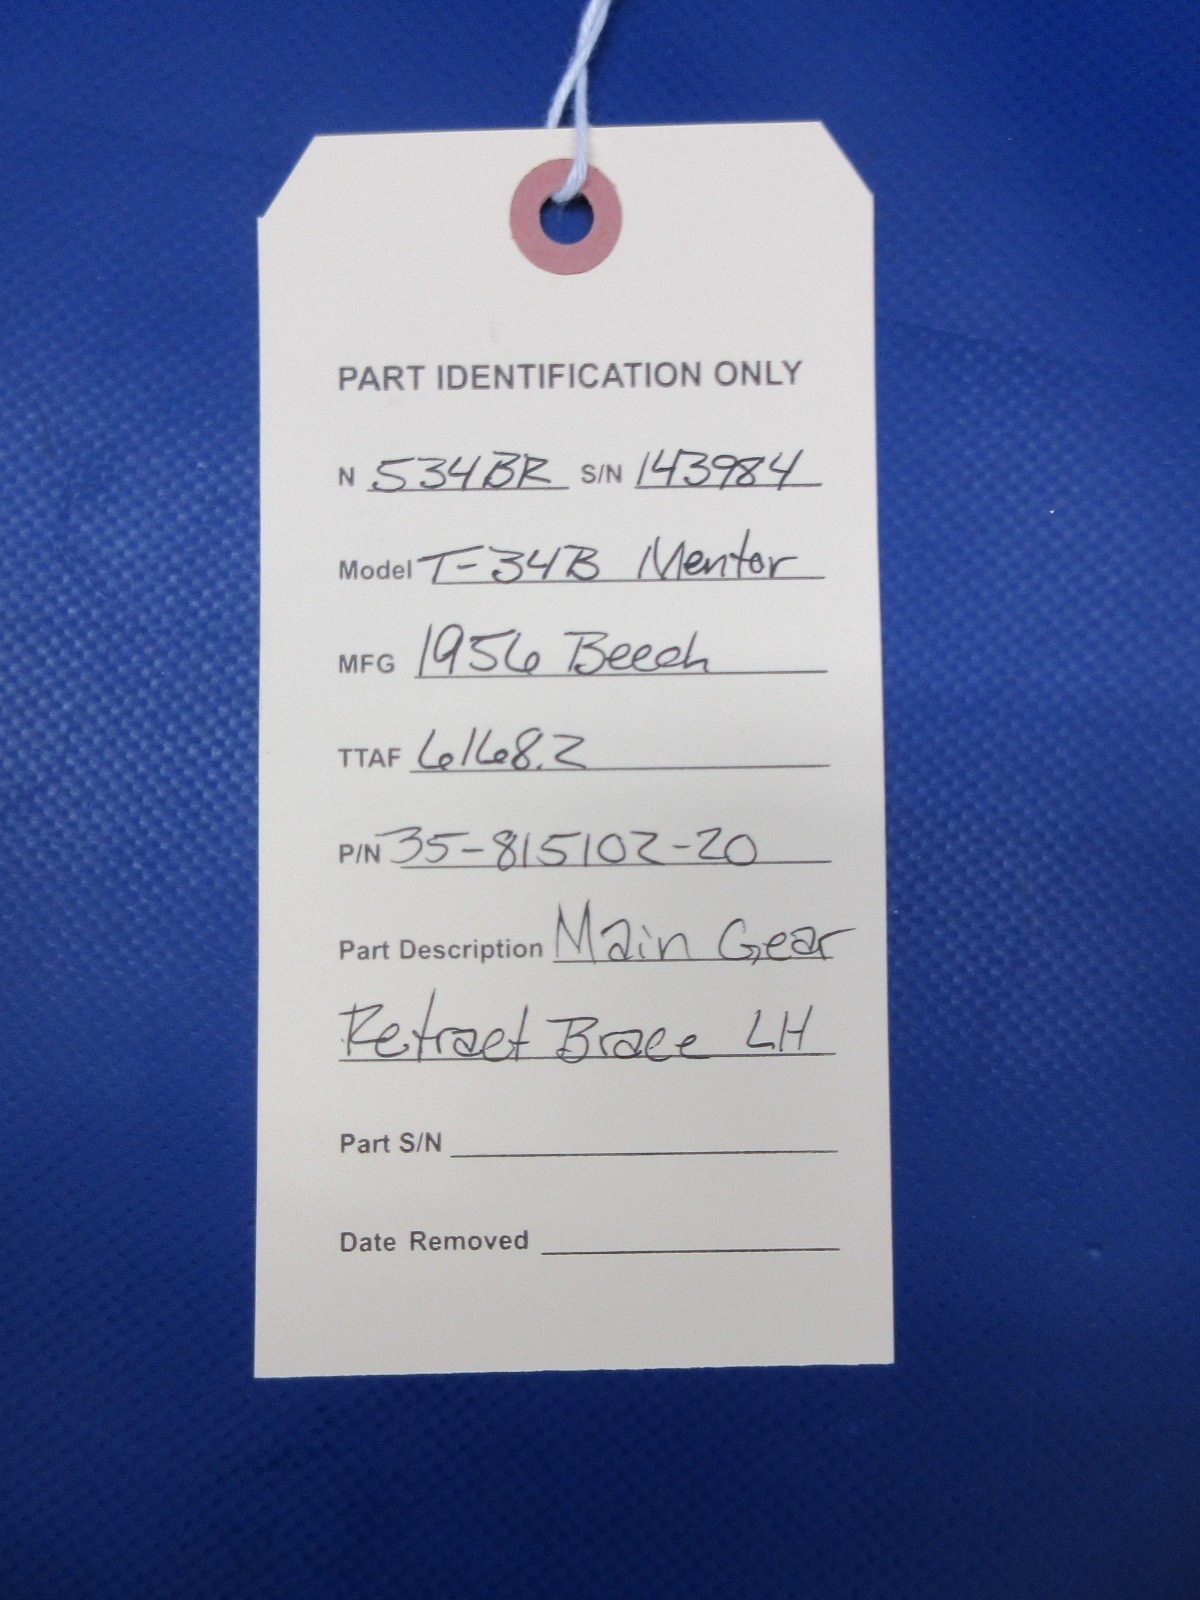 PART IDENTIFICATION ONLY
N 534BR S/N 143984
Model T-34B Mentor
MFG 1956 Beech
TTAF 6168.2
P/N 35-815102-20
Part Description Main Gear
Retract Brace LH
Part S/N
Date Removed